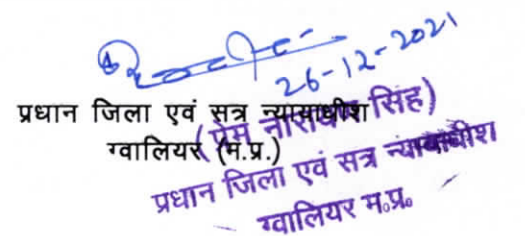 26-12-2021
प्रधान जिला एवं सत्र न्यायाधीश
ग्वालियर (म.प्र.)
(प्रेम नारायण सिंह)
प्रधान जिला एवं सत्र न्यायाधीश
ग्वालियर म०प्र०